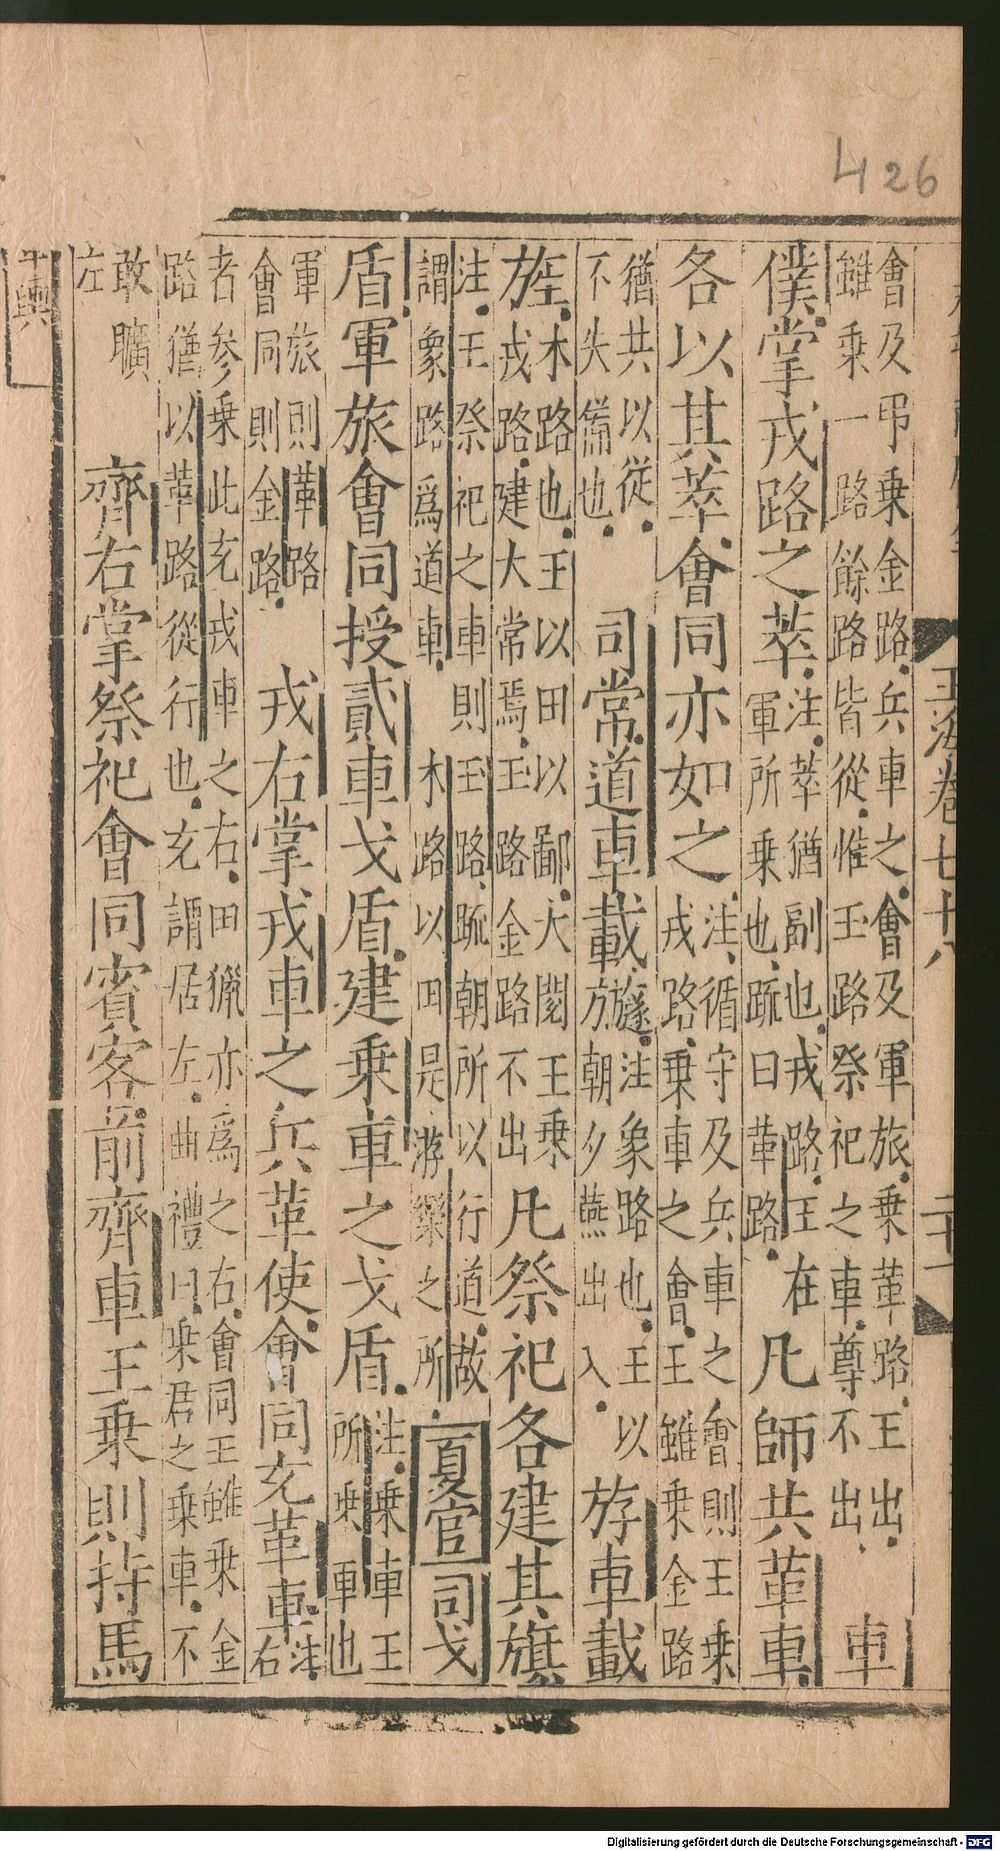 426
玉海卷七十八
二十一
會及弔乗金路兵車之會及軍旅乗革路王出
雖乗一路餘路皆從惟玉路祭祀之車尊不出
車
僕掌戎路之萃
注萃猶副也戎路王在
軍所乗也䟽曰革路
凡師共革車
各以其萃會同亦如之
注循守及兵車之會則王乗
戎路乗車之會王雖乗金路
猶共以從
不失備也
司常道車載
旞注象路也王以
朝夕燕出入
斿車載
旌
木路也王以田以鄙大閱王乗
戎路建大常焉玉路金路不出
凡祭祀各建其旗
注王祭祀之車則玉路䟽朝所以行道故
謂象路爲道車木路以田是游樂之所
夏官司戈
盾軍旅會同授貳車戈盾建乗車之戈盾
注乗車王
所乗車也
軍旅則革路
會同則金路
戎右掌戎車之兵革使會同充革車
注
右
者參乗此充戎車之右田獵亦爲之右會同王雖乗金
路猶以革路從行也充謂居左曲禮曰乗君之乗車不
敢曠
左
齊右掌祭祀會同賓客前齊車王乗則持馬
車輿
Digitalisierung gefördert durch die Deutsche Forschungsgemeinschaft - DFG